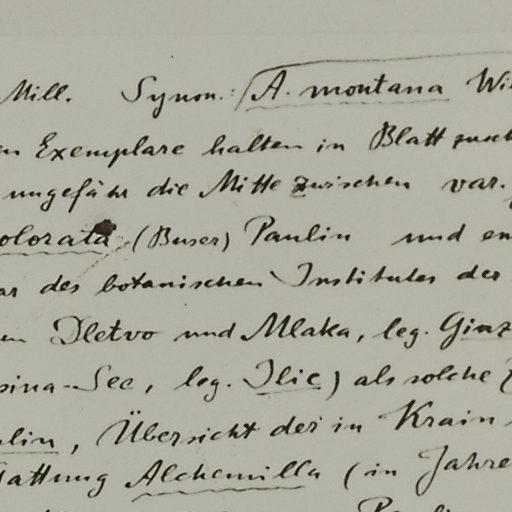 Mill. Synon.: A. montana Wi
en Exemplare halten in Blatt zusch
ungefähr die Mitte zwischen var.
olorata (Buser) Paulin und en
ar des botanischen Institutes der
en Dletvo und Mlaka, leg. Ginz
sina-See, leg. Ilic) als solche
lin, Übersicht der in Krain
Gattung Alchemilla (in Jahre
Paulin